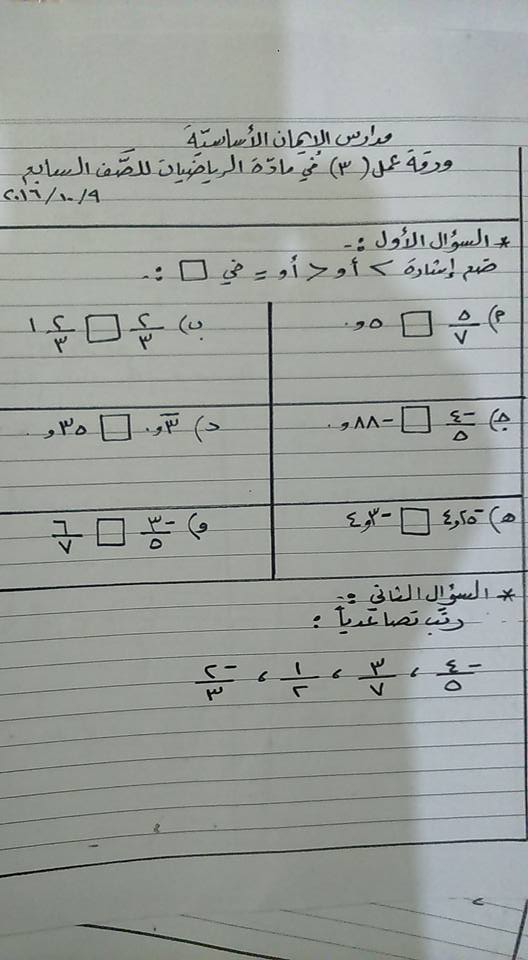 مدارس الإيمان الأساسيّة
ورقة عمل (٣) في مادّة الرياضيات للصّف السابع
٢٠١٦/١٠/٩
* السؤال الأول :-
ضع إشارة < أو > أو = في □ :-
أ) ٥/٧ □ ٥و٠
ب) ٢/٣ □ ١ ٢/٣
ج) -٤/٥ □ -٨٨و٠
د) ٣̅و٠ □ ٣٥و٠
هـ) -٤٫٢٥ □ -٤٫٣
و) -٣/٥ □ ٦/٧
* السؤال الثاني :-
رتّب تصاعدياً :
-٤/٥ ، ٣/٧ ، ١/٢ ، -٢/٣